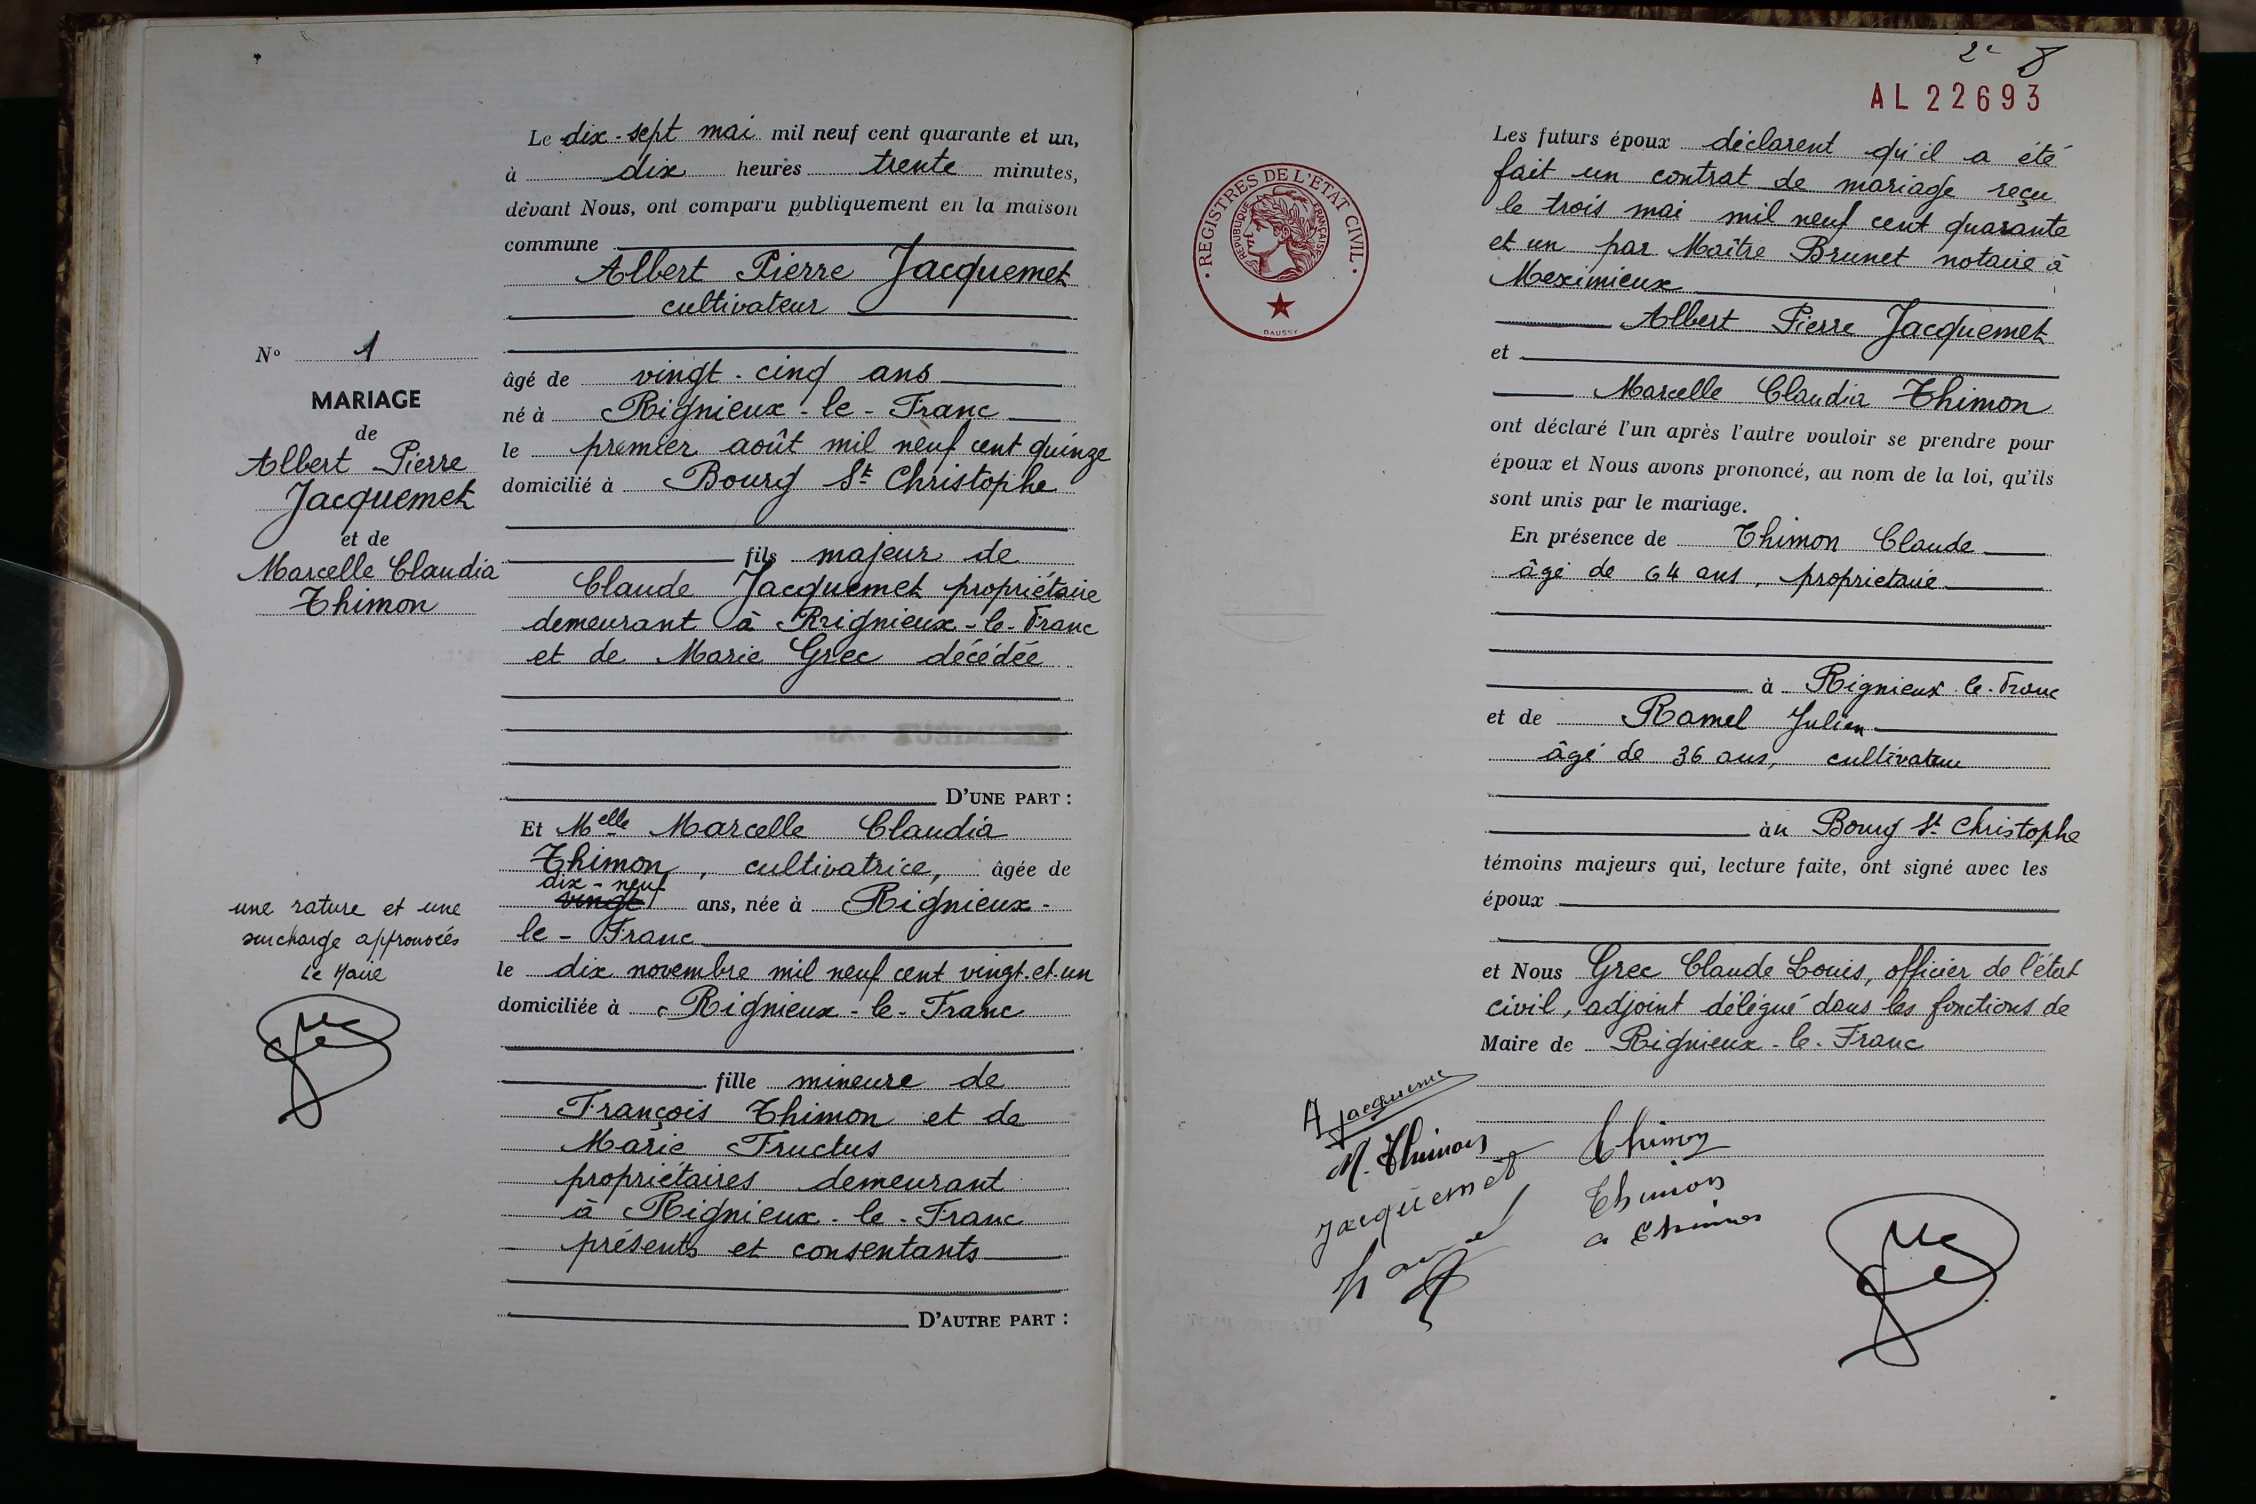 Le dix-sept mai mil neuf cent quarante et un,
à dix heures trente minutes,
devant Nous, ont comparu publiquement en la maison
commune
Albert Pierre Jacquemet
cultivateur
âgé de vingt-cinq ans
né à Rignieux-le-Franc
le premier août mil neuf cent quinze
domicilié à Bourg St Christophe
fils majeur de
Claude Jacquemet propriétaire
demeurant à Rignieux-le-Franc
et de Marie Grec décédée
D'UNE PART :
Et Melle Marcelle Claudia
Thimon, cultivatrice, âgée de
dix-neuf
vingt ans, née à Rignieux-
le-Franc
le dix novembre mil neuf cent vingt-et-un
domiciliée à Rignieux-le-Franc
fille mineure de
François Thimon et de
Marie Fructus
propriétaires demeurant
à Rignieux-le-Franc
présents et consentants
D'AUTRE PART :
No 1
MARIAGE
de
Albert Pierre
Jacquemet
et de
Marcelle Claudia
Thimon
une rature et une
surcharge approuvées
Le Maire
2e
AL 22693
REGISTRES DE L'ETAT CIVIL
REPUBLIQUE FRANÇAISE
DAUSSY
Les futurs époux déclarent qu'il a été
fait un contrat de mariage reçu
le trois mai mil neuf cent quarante
et un par Maître Brunet notaire à
Meximieux
Albert Pierre Jacquemet
et
Marcelle Claudia Thimon
ont déclaré l'un après l'autre vouloir se prendre pour
époux et Nous avons prononcé, au nom de la loi, qu'ils
sont unis par le mariage.
En présence de Thimon Claude
âgé de 64 ans, propriétaire
à Rignieux-le-Franc
et de Ramel Julien
âgé de 36 ans, cultivateur
à u Bourg St Christophe
témoins majeurs qui, lecture faite, ont signé avec les
époux
et Nous Grec Claude Louis, officier de l'état
civil, adjoint délégué dans les fonctions de
Maire de Rignieux-le-Franc
A Jacqueme
M. Thimon
Thimon
Jacquemet
Thimon
a Thimon